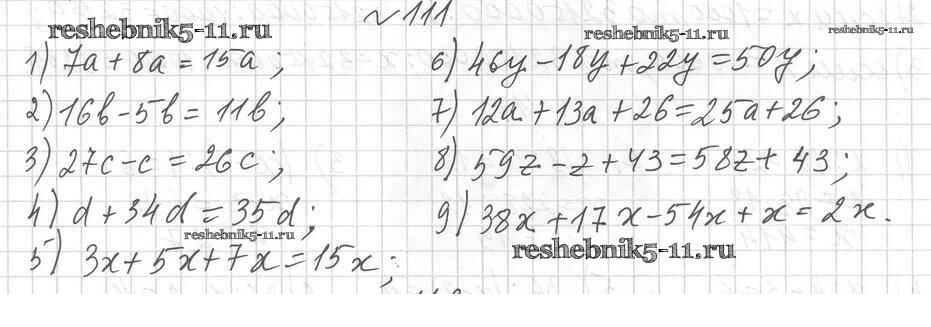 № 111.
reshebnik5-11.ru
reshebnik5-11.ru
reshebnik5-11.ru
1) 7a + 8a = 15a;
2) 16b - 5b = 11b;
3) 27c - c = 26c;
4) d + 34d = 35d;
reshebnik5-11.ru
5) 3x + 5x + 7x = 15x;
6) 46y - 18y + 22y = 50y;
7) 12a + 13a + 26 = 25a + 26;
8) 59z - z + 43 = 58z + 43;
9) 38x + 17x - 54x + x = 2x.
reshebnik5-11.ru